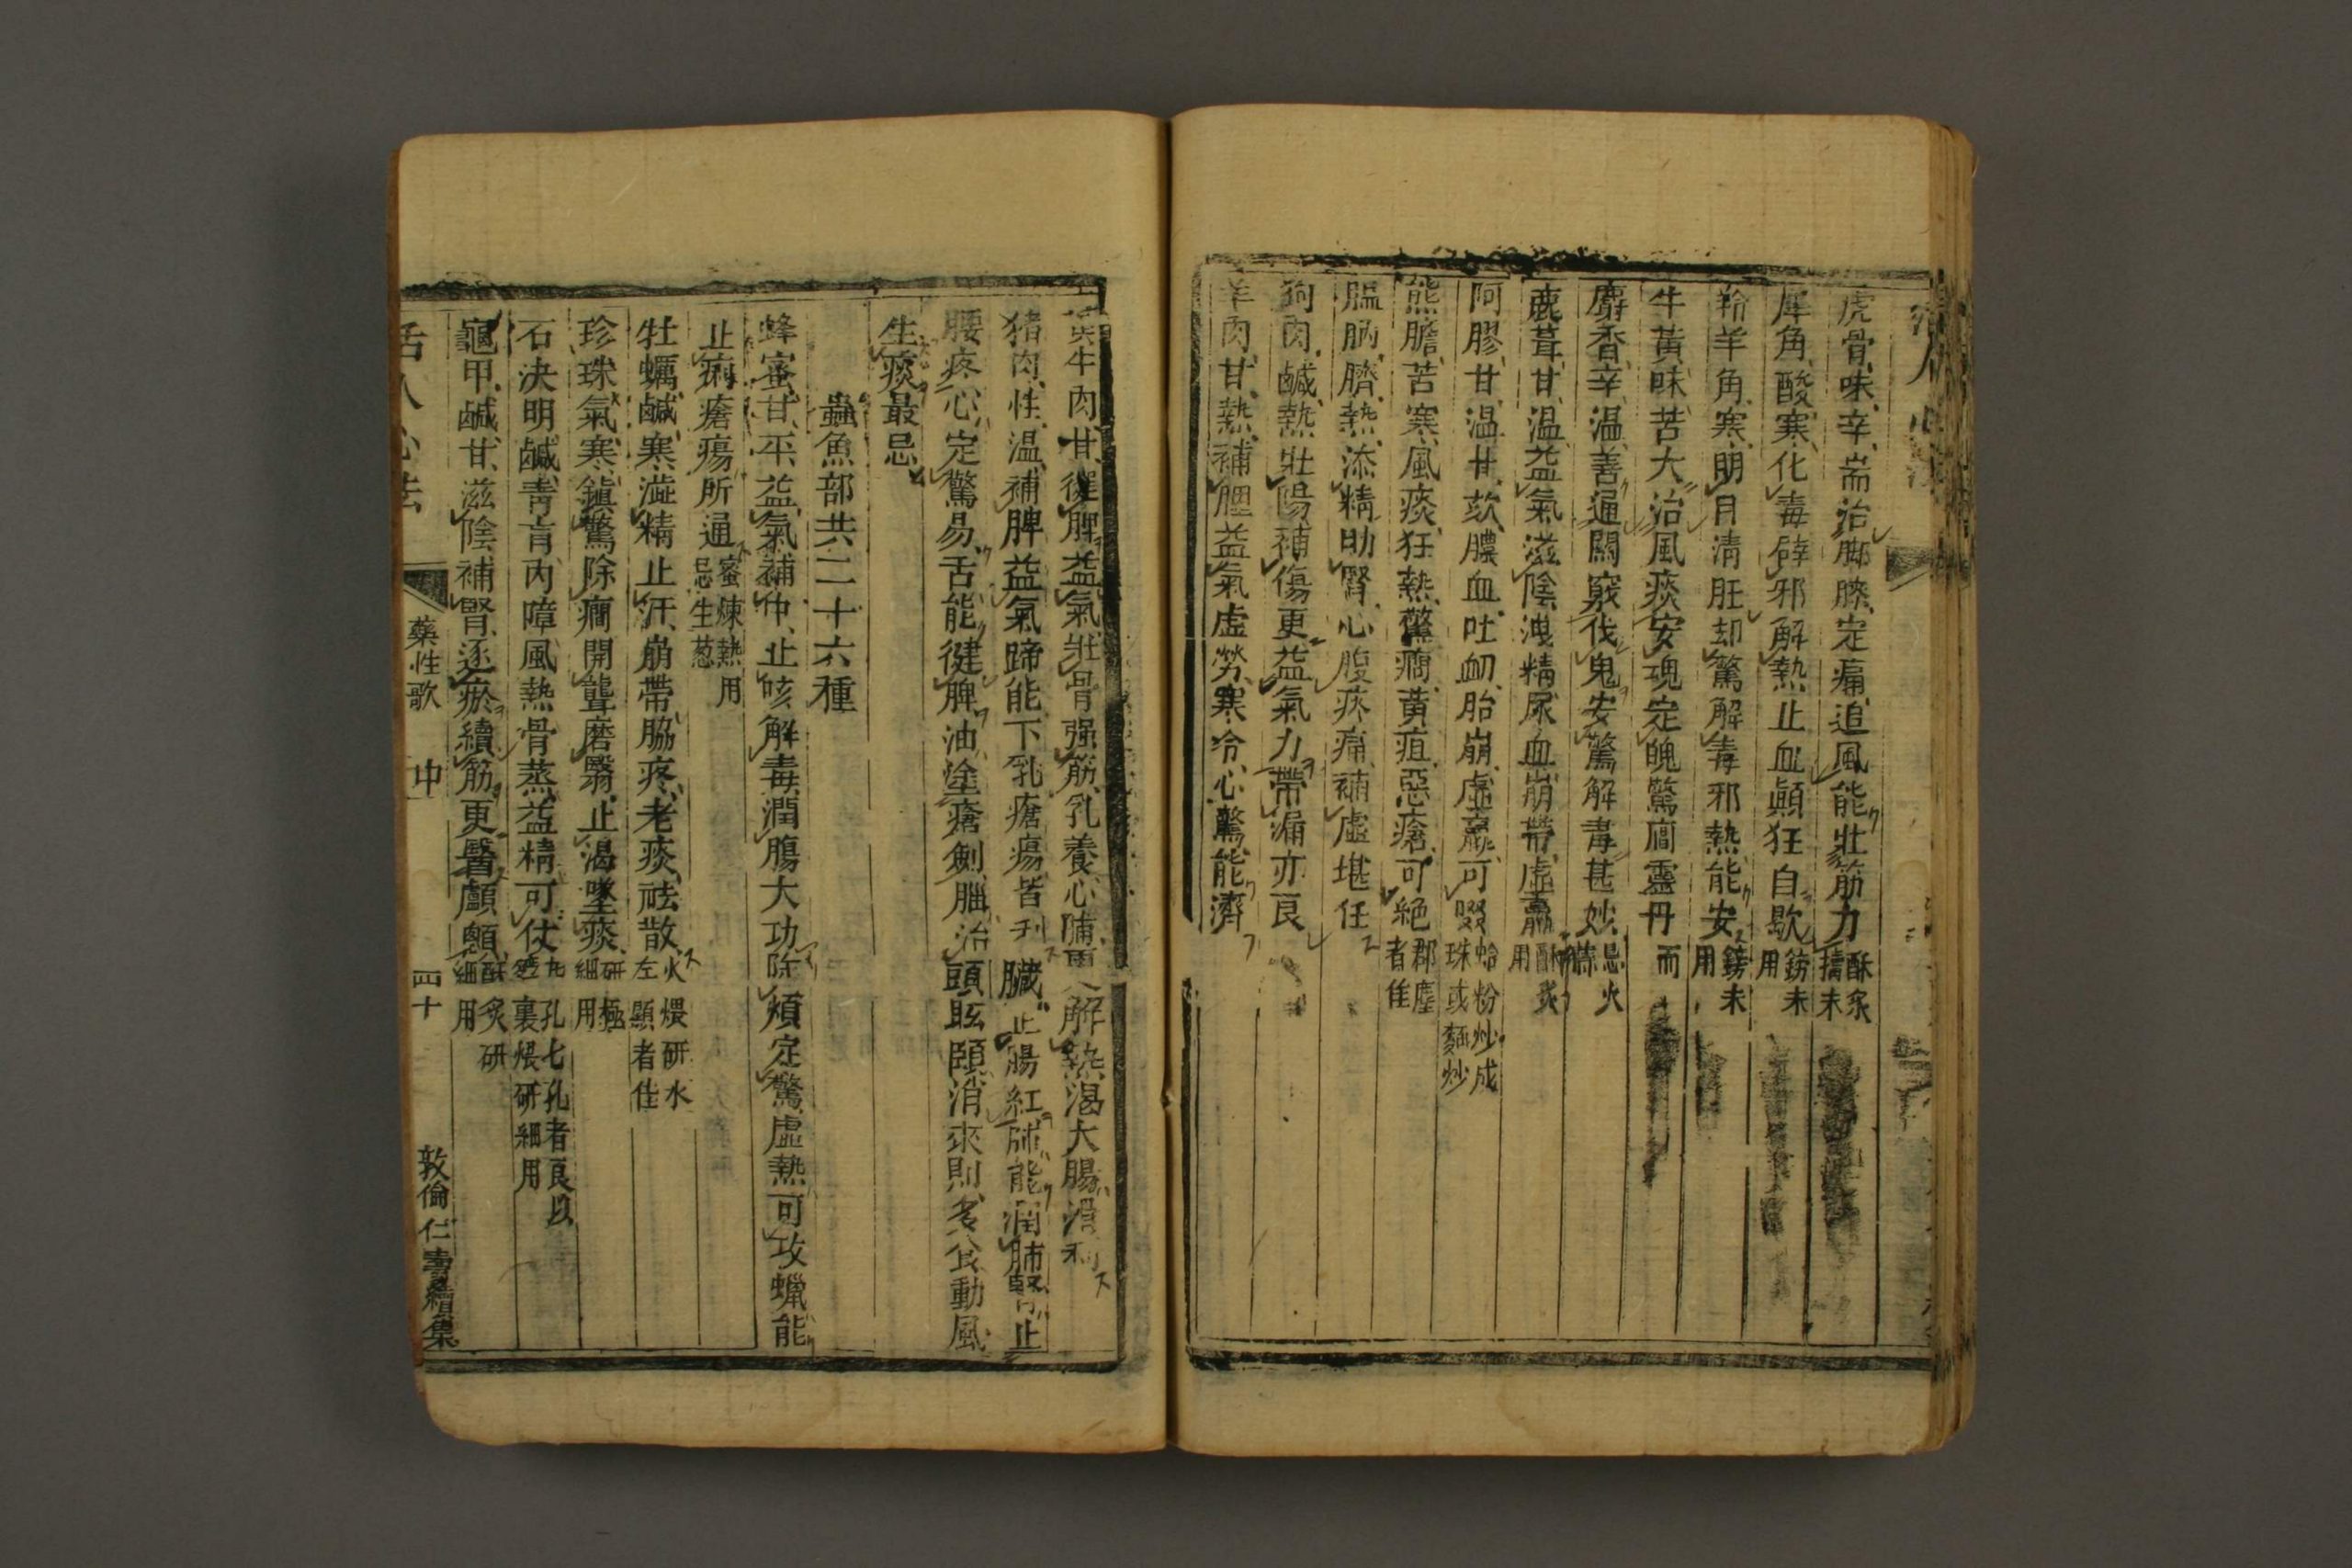 虎骨味辛耑治脚膝定痛追風能壯筋力酥炙擣末
犀角酸寒化毒辟邪解熱止血顚狂自歇鎊末用
羚羊角寒明目清肝却驚解毒邪熱能安鎊末用
牛黃味苦大治風痰安魂定魄驚癎靈丹而
麝香辛温善通關竅伐鬼安驚解毒甚妙忌火
鹿茸甘温益氣滋陰洩精尿血崩帶虛羸酥炙用
阿膠甘温甘欬膿血吐衂胎崩虛羸可啜蛤粉炒成珠或麵炒
熊膽苦寒風痰狂熱驚癎黃疸惡瘡可絕郡塵者佳
膃肭臍熱添精助腎心腹疼痛補虛堪任
狗肉鹹熱壯陽補傷更益氣力帶漏亦良
羊肉甘熱補腥益氣虛勞寒冷心驚能濟
牛肉甘徤脾益氣壯骨强筋乳養心肺更解熱渴大腸滑利
猪肉性温補脾益氣蹄能下乳瘡瘍皆利臟止腸紅肺能潤肺腎止
腰疼心定驚易舌能徤脾油塗瘡劍腦治頭眩頤消來則多食動風
生痰最忌
蟲魚部共二十六種
蜂蜜甘平益氣補仲止咳解毒潤腸大功除煩定驚虛熱可攻蠟能
止痢瘡瘍所通蜜煉熱用忌生葱
牡蠣鹹寒澁精止汗崩帶脇疼老痰祛散火煨研水左顯者佳
珍珠氣寒鎭驚除癎開聾磨翳止渴墜痰研極細用
石決明鹹靑盲內障風熱骨蒸益精可仗九孔七孔者良以麵裹煨研細用
龜甲鹹甘滋陰補腎逐瘀續筋更醫顱顖酥炙研細用
活人心法 藥性歌 中 四十 敦倫仁壽續集